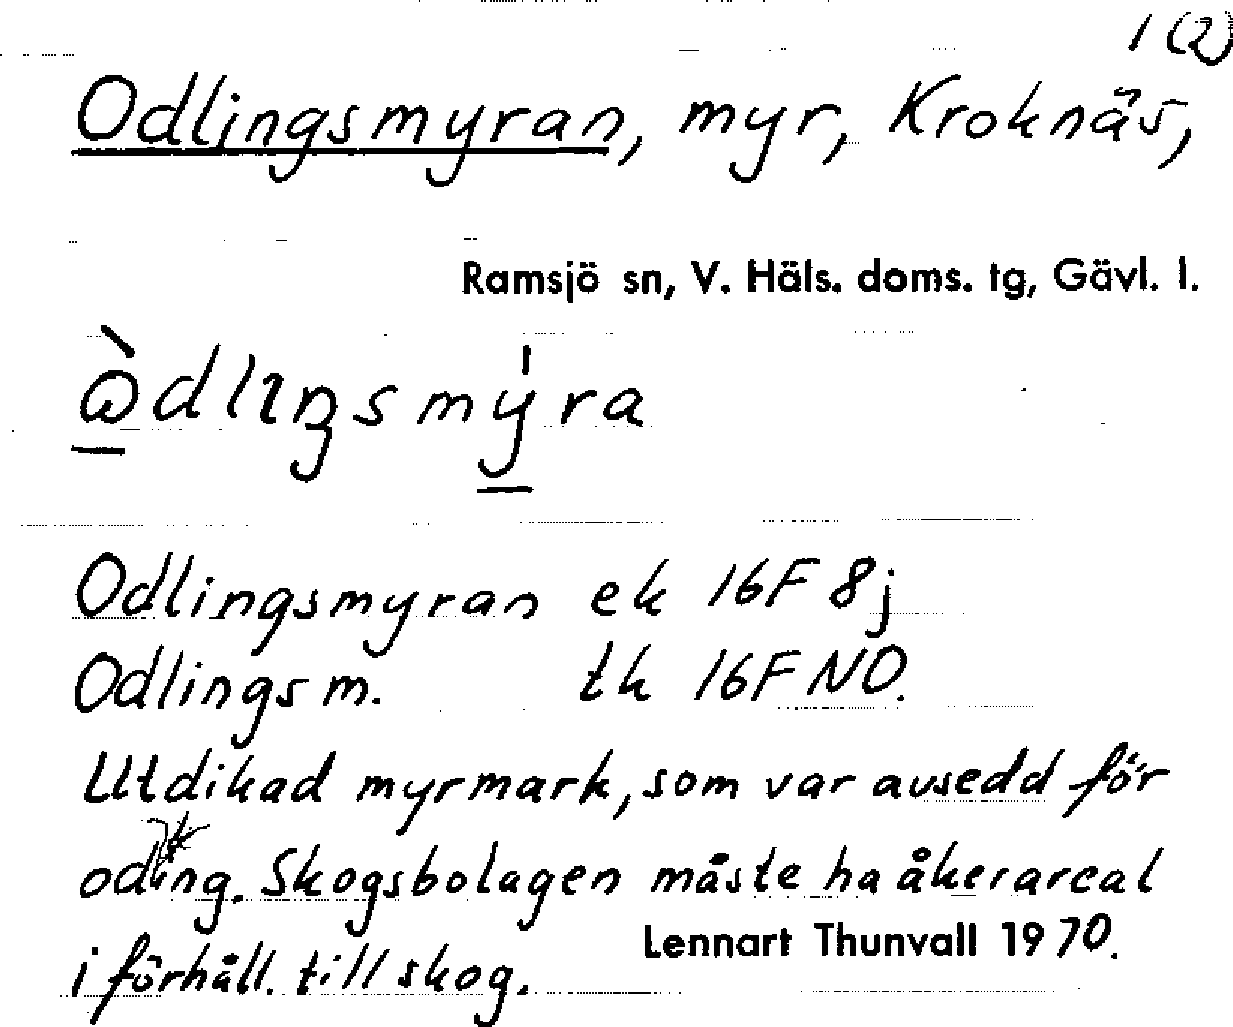 1 (2)
Odlingsmyran, myr, Kroknäs,
Ramsjö sn, V. Häls. doms. tg, Gävl. l.
Odlingsmyran ek 16F 8j
Odlings m. tk 16F NO.
Utdikad myrmark, som var avsedd för
odling. Skogsbolagen måste ha åkerareal
i förhåll. till skog. Lennart Thunvall 1970.